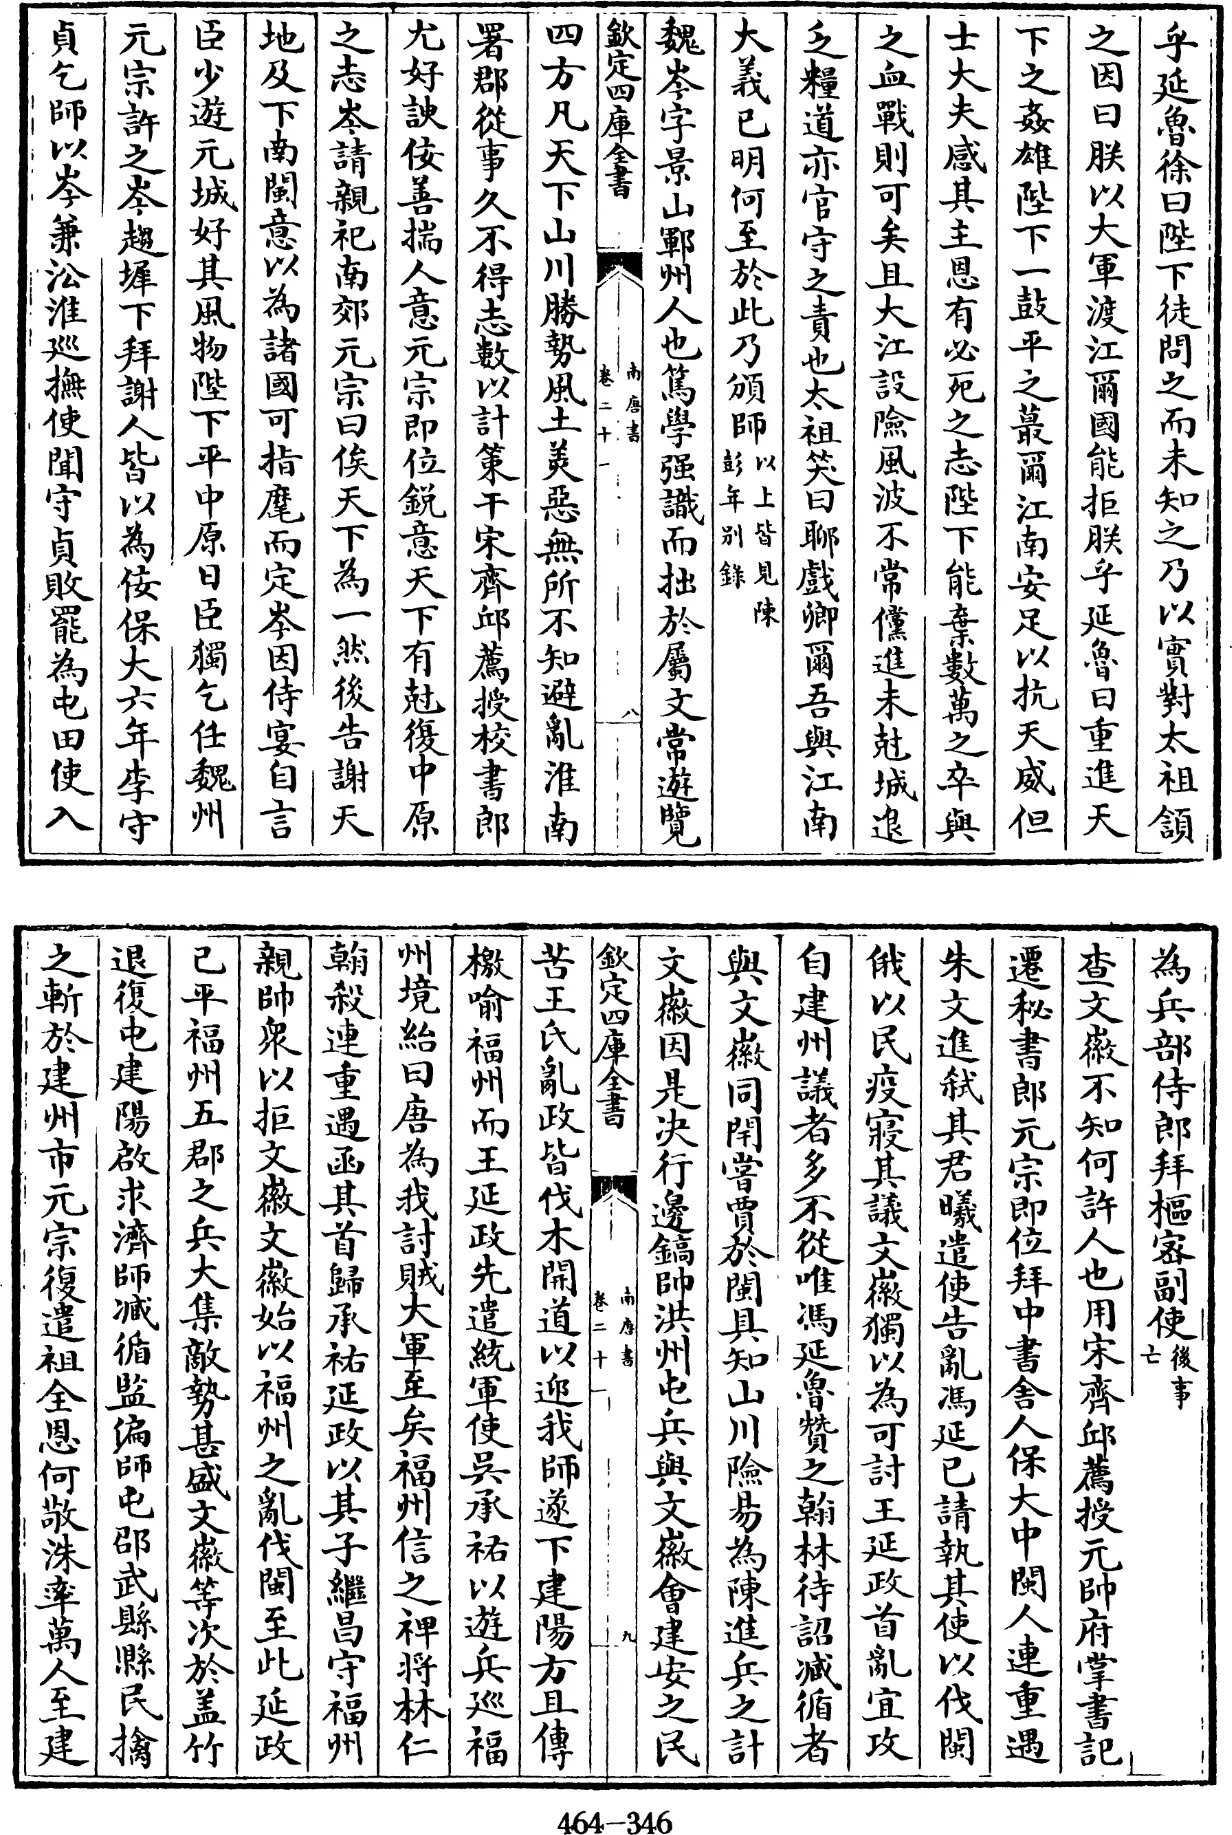 乎延魯徐曰陛下徒問之而未知之乃以實對太祖頷
之因曰朕以大軍渡江爾國能拒朕乎延魯曰重進天
下之姦雄陛下一鼓平之蕞爾江南安足以抗天威但
士大夫感其主恩有必死之志陛下能棄數萬之卒與
之血戰則可矣且大江設險風波不常儻進未尅城退
乏糧道亦官守之責也太祖笑曰聊戲卿爾吾與江南
大義已明何至於此乃頒師以上皆見陳彭年别錄
魏岑字景山鄆州人也篤學强識而拙於屬文常遊覽
欽定四庫全書
南唐書
卷二十一
八
四方凡天下山川勝勢風土美惡無所不知避亂淮南
署郡從事久不得志數以計策干宋齊邱薦授校書郎
尤好諛佞善揣人意元宗即位鋭意天下有尅復中原
之志岑請親祀南郊元宗曰俟天下為一然後告謝天
地及下南閩意以為諸國可指麾而定岑因侍宴自言
臣少遊元城好其風物陛下平中原日臣獨乞任魏州
元宗許之岑趨墀下拜謝人皆以為佞保大六年李守
貞乞師以岑兼沿淮巡撫使聞守貞敗罷為屯田使入
為兵部侍郎拜樞密副使後事亡
查文徽不知何許人也用宋齊邱薦授元帥府掌書記
遷秘書郎元宗即位拜中書舍人保大中閩人連重遇
朱文進弑其君曦遣使告亂馮延已請執其使以伐閩
俄以民疫寢其議文徽獨以為可討王延政首亂宜攻
自建州議者多不從唯馮延魯贊之翰林待詔臧循者
與文徽同閈嘗賈於閩具知山川險易為陳進兵之計
文徽因是決行邊鎬帥洪州屯兵與文徽會建安之民
欽定四庫全書
南唐書
卷二十一
九
苦王氏亂政皆伐木開道以迎我師遂下建陽方且傳
檄喻福州而王延政先遣統軍使吳承祐以遊兵巡福
州境紿曰唐為我討賊大軍至矣福州信之禆將林仁
翰殺連重遇函其首歸承祐延政以其子繼昌守福州
親帥衆以拒文徽文徽始以福州之亂伐閩至此延政
已平福州五郡之兵大集敵勢甚盛文徽等次於盖竹
退復屯建陽啟求濟師臧循監偏師屯邵武縣縣民擒
之斬於建州市元宗復遣祖全恩何敬洙率萬人至建
464-346